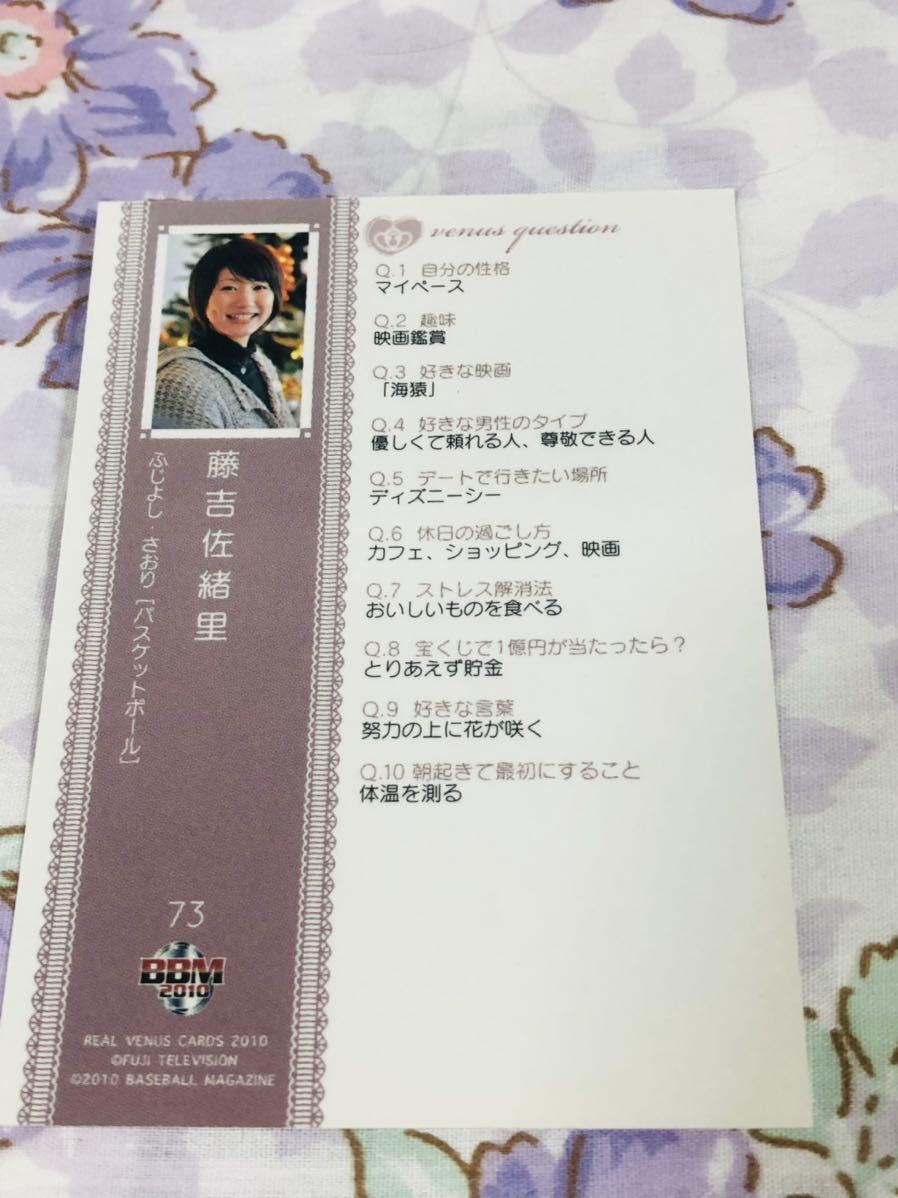 藤吉佐緒里
ふじよし・さおり［バスケットボール］
73
BBM
2010
REAL VENUS CARDS 2010
©FUJI TELEVISION
©2010 BASEBALL MAGAZINE
venus question
Q.1 自分の性格
マイペース
Q.2 趣味
映画鑑賞
Q.3 好きな映画
「海猿」
Q.4 好きな男性のタイプ
優しくて頼れる人、尊敬できる人
Q.5 デートで行きたい場所
ディズニーシー
Q.6 休日の過ごし方
カフェ、ショッピング、映画
Q.7 ストレス解消法
おいしいものを食べる
Q.8 宝くじで1億円が当たったら？
とりあえず貯金
Q.9 好きな言葉
努力の上に花が咲く
Q.10 朝起きて最初にすること
体温を測る